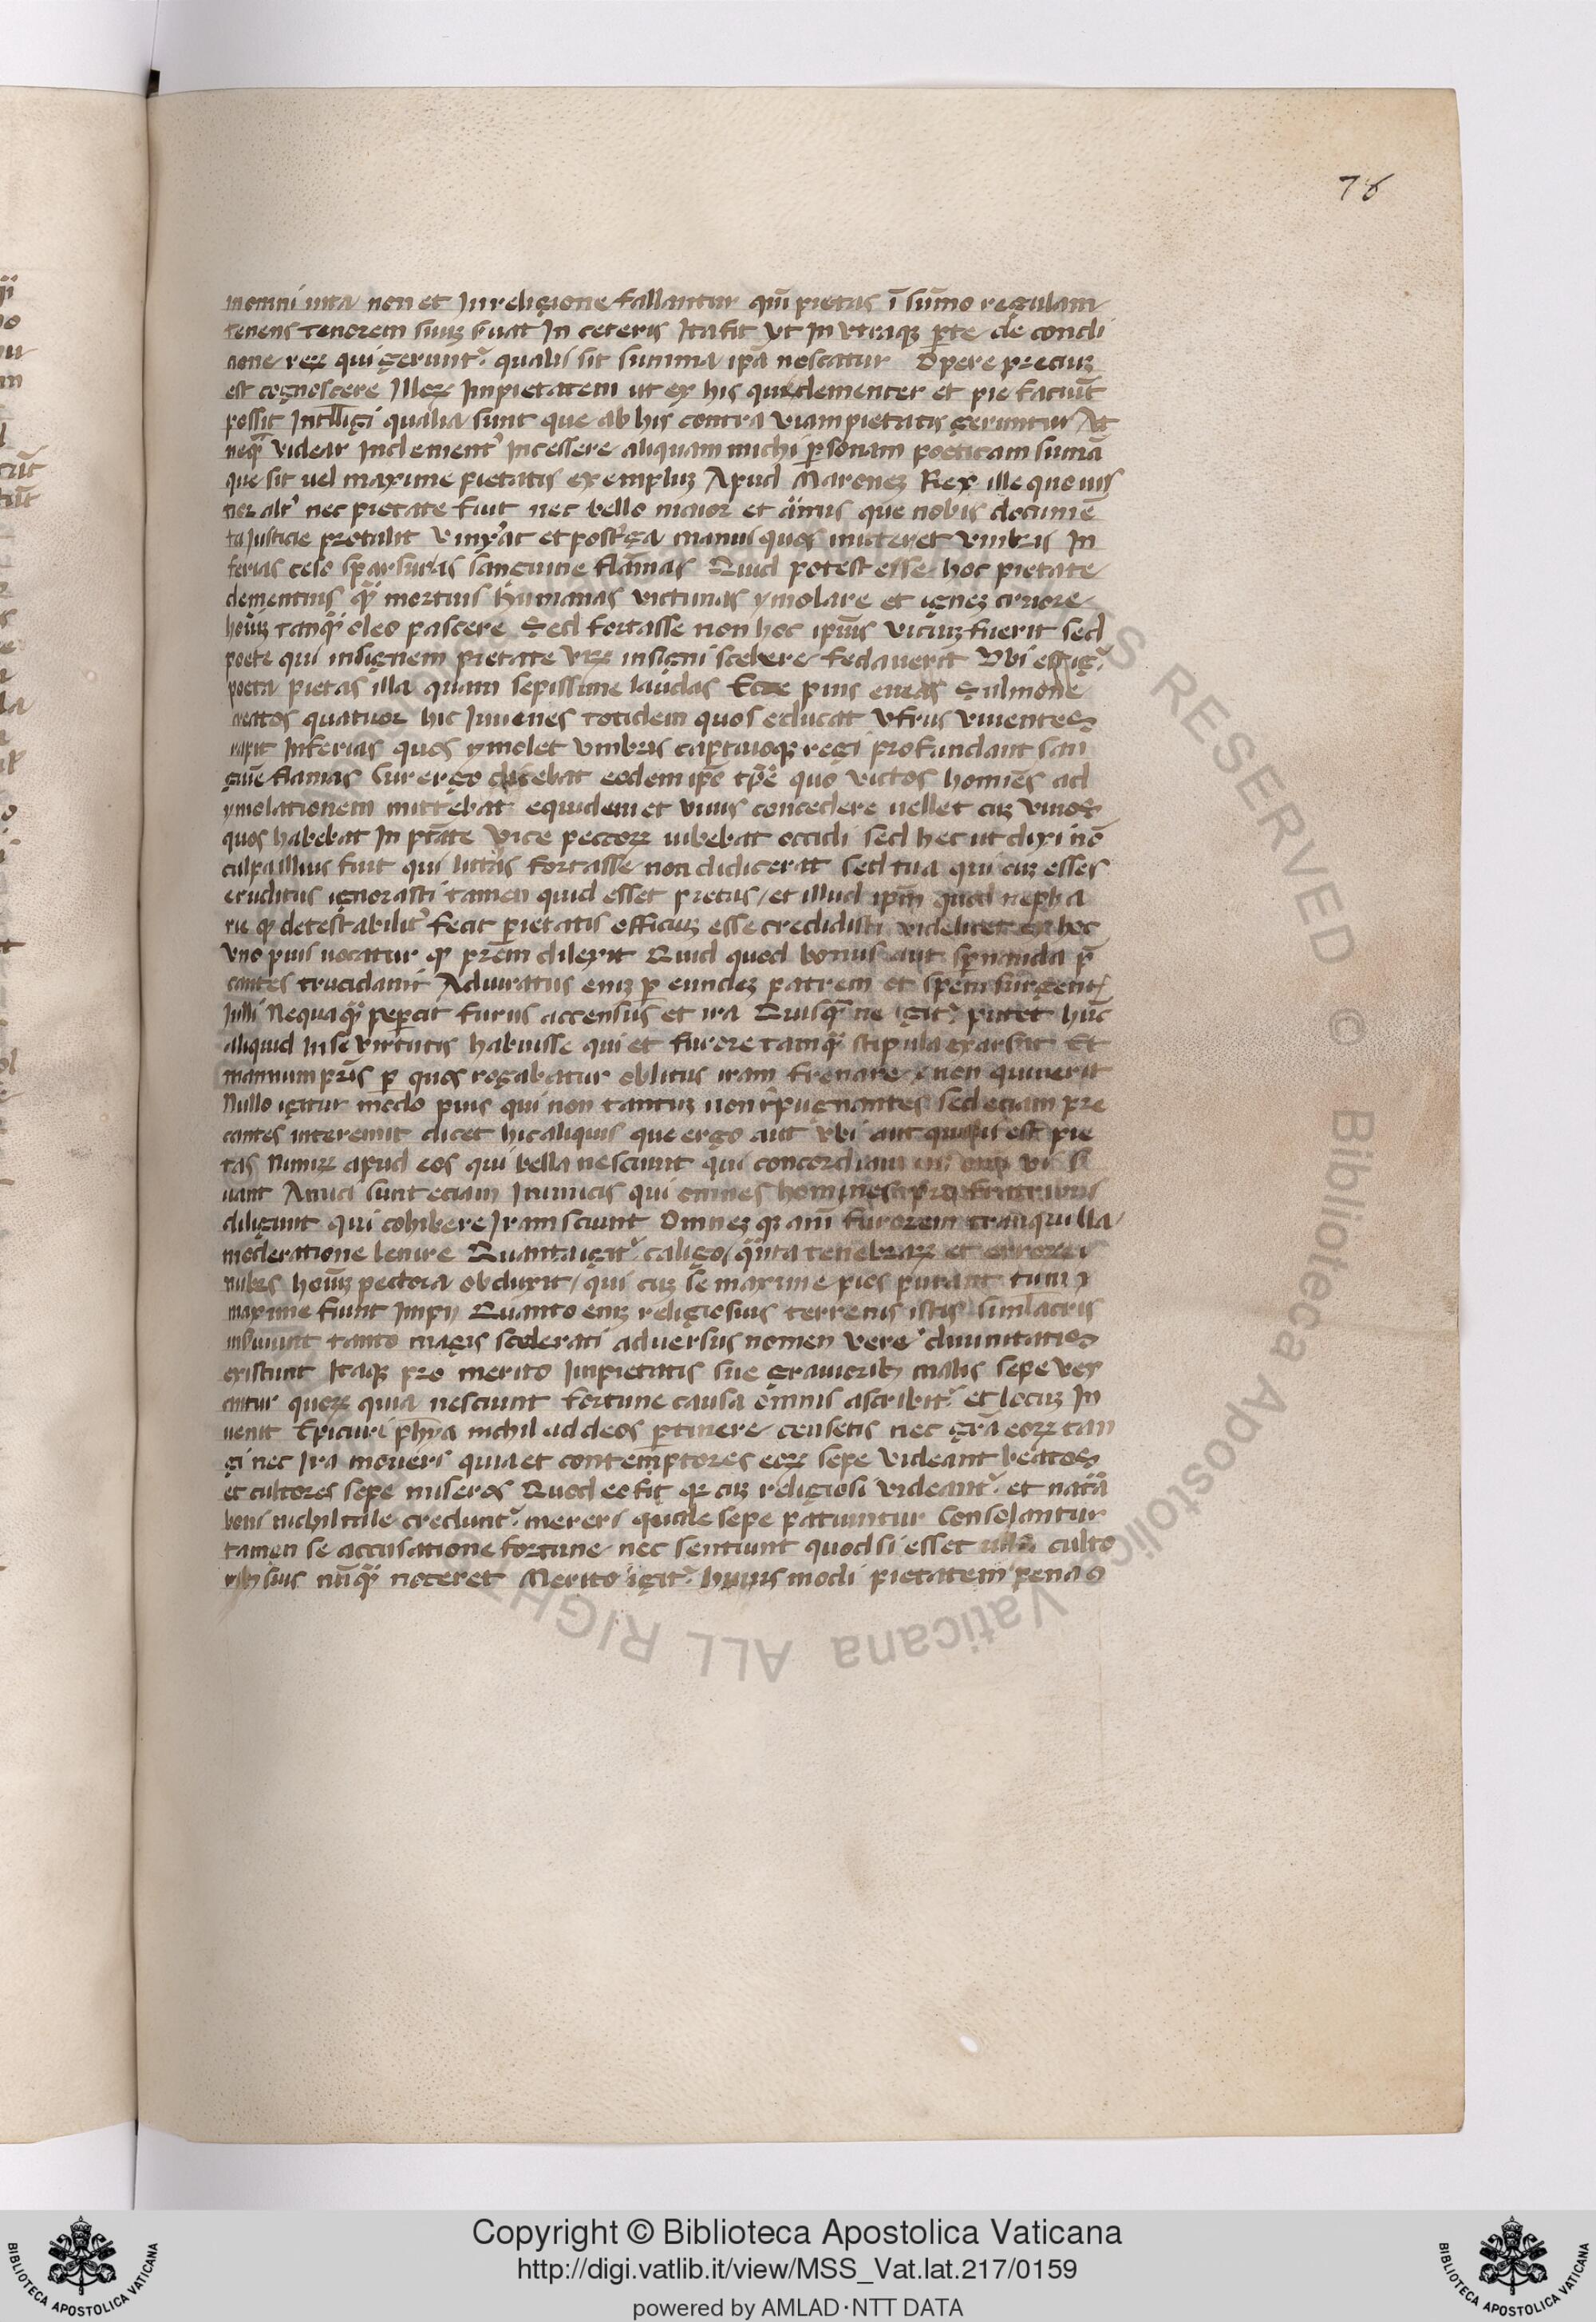 76
in omni uita non et In religione fallantur qm̄ pietas ī sūmo regulam
tenens tenorem suuꝫ s̄uat In ceteris Ita fit vt In vtraqꝫ ꝑte de condi
cione reꝝ qui geruntᷣ qualis sit summa ip̄a noscatur Opere preciuꝫ
est cognoscere Illoꝝ Impietatem ut ex his que clementer et pie faciūt
possit Intllīgi qualia sunt que ab his contra viam pietatis geruntur At
neqꝫ videar Inclementᷣ Incessere aliquam michi ꝑsonam poeticam sumā
que sit uel maxime pietatis exempluꝫ Apud Maroneꝫ Rex ille quo iust
ior altᷣ nec pietate fuit nec bello maior et armis que nobis documē
ta Justicie protulit vinxᷣat et post tᷣga manus quos mitteret vmbris In
ferias ceso sparsuras sanguine flāmas Quid potest esse hoc pietate
clementius qᷓ mortuis humanas victimas ymolare et igneꝫ cruore
hoīuꝫ tanqᷓ oleo pascere Sed fortasse non hoc ipīus viciuꝫ fuerit sed
poete qui insignem pietate viꝝ insigni scelere fedauerit Vbi est igᷣ
poeta pietas illa quam sepissime laudas Ecce pius eneas Sulmone
creatos quatuor hic Iuuenes totidem quos educat vfens viuentes
rapit Inferias quos ymolet vmbris captiuoqꝫ rogi profundant san
guīe flamas Cur ergo dicebat eodem ipō tp̄e quo victos homīes ad
ymolationem mittebat equidem et viuis concedere uellet cuꝫ viuos
quos habebat In ptāte vice pecorꝝ iubebat occidi sed hec ut dixi nō
culpa illius fuit qui litt̄as fortasse non didicerat sed tua qui cuꝫ esses
eruditus ignorasti tamen quid esset pietas / et illud ipm̄ quod nepha
rie qꝫ detestabilitᷣ fecit pietatis officiuꝫ esse credidisti videlicet ob hoc
vno pius uocatur qꝫ prēm dilexit Quid quod bonus
cantes trucidauit Adiuratus eniꝫ ꝑ eundeꝫ patrem et spem surgent
Iulli Nequaqᷓ peꝑcit furiis accensus et ira Quisqᷓ ne igitᷣ putet hūc
aliquid In se virtutis habuisse qui et furore tamqᷓ stipula exarserit Et
manium pr̄is ꝑ quos rogabatur oblitus iram frenare non quiuerit
Nullo igitur modo pius qui non tantuꝫ non r̄pugnantes sed eciam pre
cantes interemit dicet hic aliquis que ergo aut vbi aut qualis est pie
tas Nimiꝝ apud eos qui bella nesciunt qui concordiam cū
uant Amici sunt eciam Inimicis qui omnes homines pro fratribus
diligunt qui cohibere Iram sciunt Omneꝫ qꝫ am̄ furorem tranquilla
moderatione lenire Quanta igitᷣ caligo / qᷓnta tenebraꝝ et erroruꝫ
nubes hoīuꝫ pectora obduxit / qui cuꝫ se maxime pios putant tum
maxime fiunt Impij Quanto eniꝫ religiosius terrenis istis simlacris
inseruiunt tanto magis scelerati aduersus nomen vere diuinitatis
existunt Itaqꝫ pro merito Impietatis sue grauioribꝫ malis sepe vex
antur quoꝝ quia nesciunt fortune causa omnis ascribitᷣ et locuꝫ In
uenit Epicuri phȳa nichil ad deos ꝑtinere censetis nec grā eoꝝ tan
gi nec Ira moueri quia et contemptores eoꝝ sepe videant beatos
et cultores sepe miseros Quod eo fit qꝫ cuꝫ religiosi videantᷣ et natᷓa
boni nichil tale creduntᷣ mereri quale sepe patiuntur Consolantur
tamen se accusatione fortune nec sentiunt quod si esset ulla culto
ribꝫ suis nūqᷓ noceret Merito igitᷣ huius modi pietatem pena
ALL RIGHTS RESERVED © Biblioteca Apostolica Vaticana
Copyright © Biblioteca Apostolica Vaticana
http://digi.vatlib.it/view/MSS_Vat.lat.217/0159
powered by AMLAD·NTT DATA
BIBLIOTECA APOSTOLICA VATICANA
BIBLIOTECA APOSTOLICA VATICANA